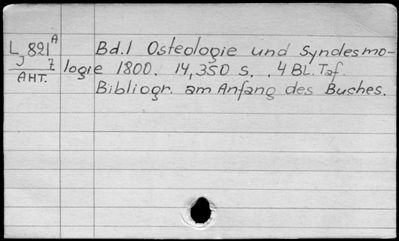 L 891 A Bd.1 Osteologie und Syndesmo-
J 7 logie 1800. 14,350 S., 4 BL.Taf.
AHT. Bibliogr. am Anfang des Buches.